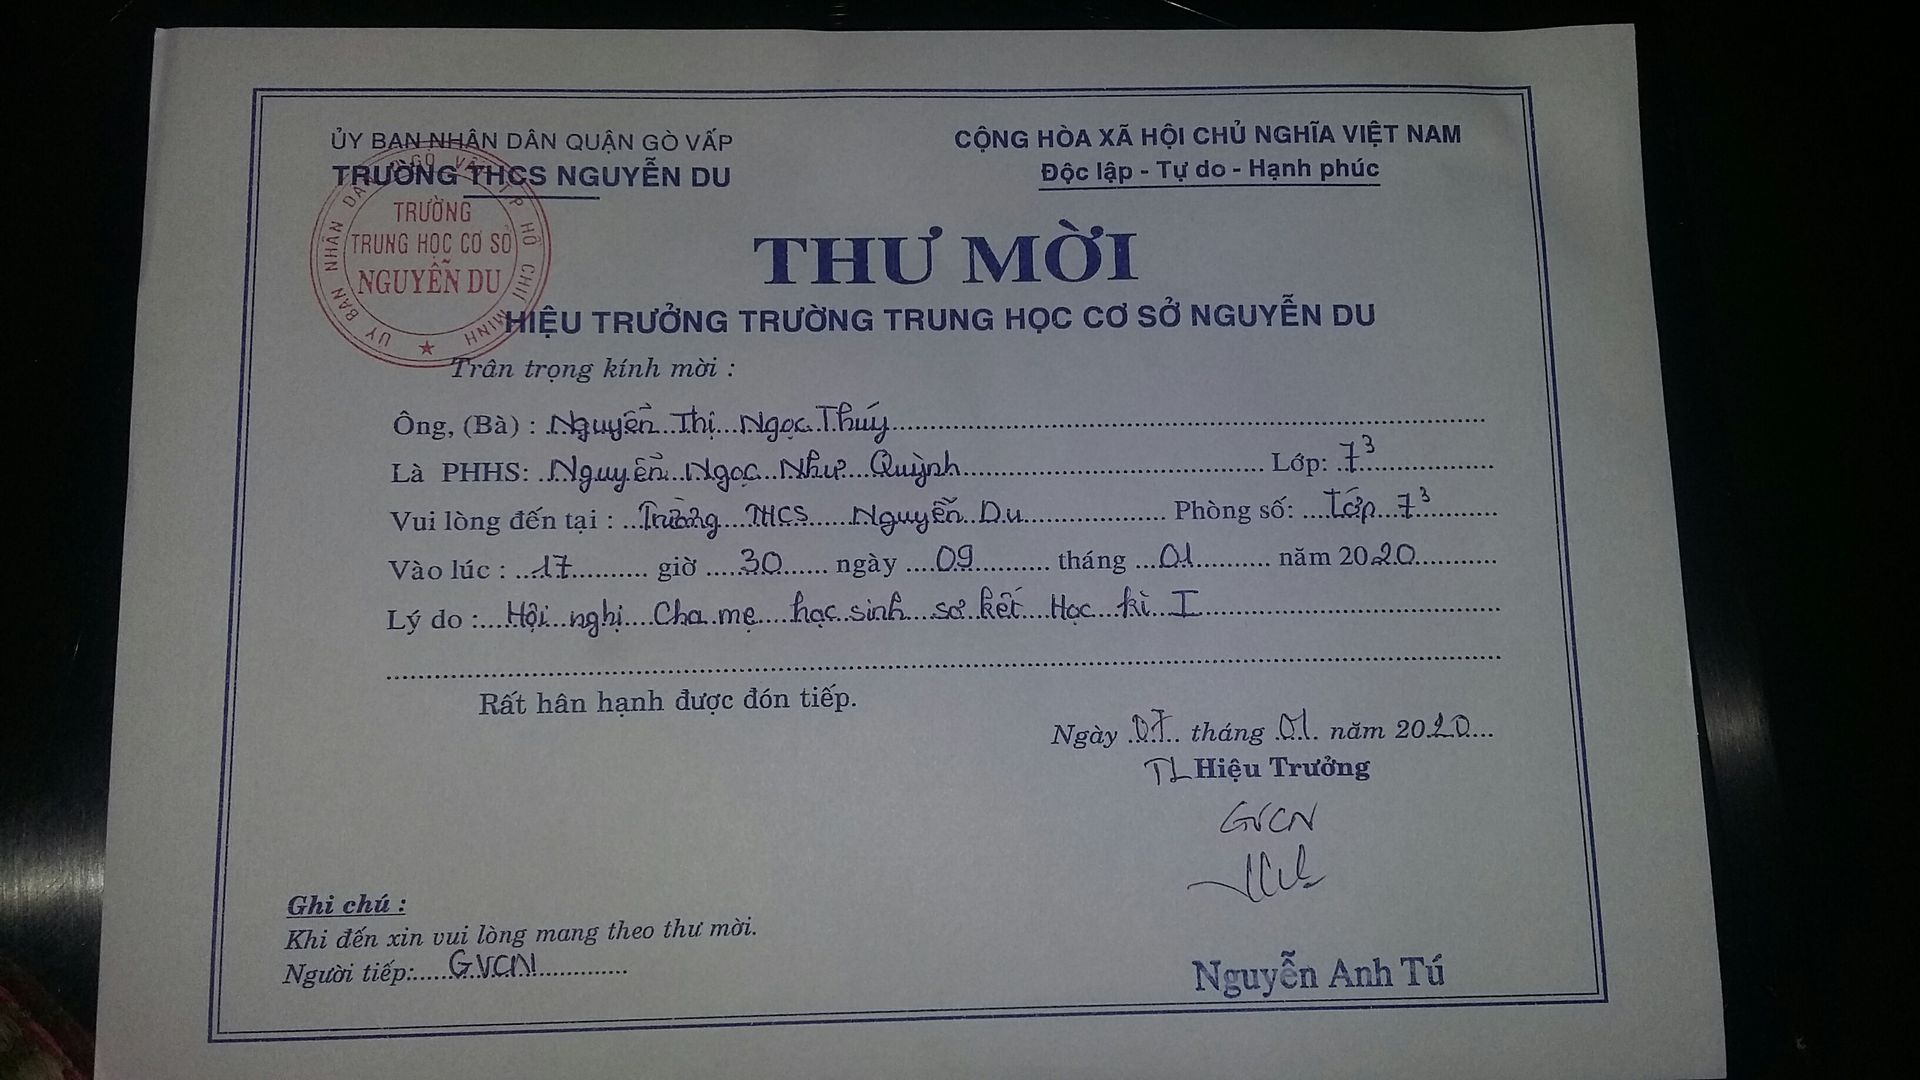 ỦY BAN NHÂN DÂN QUẬN GÒ VẤP
TRƯỜNG THCS NGUYỄN DU
CỘNG HÒA XÃ HỘI CHỦ NGHĨA VIỆT NAM
Độc lập - Tự do - Hạnh phúc
ỦY BAN NHÂN DÂN Q GÒ VẤP T.P HỒ CHÍ MINH
TRƯỜNG
TRUNG HỌC CƠ SỞ
NGUYỄN DU
THƯ MỜI
HIỆU TRƯỞNG TRƯỜNG TRUNG HỌC CƠ SỞ NGUYỄN DU
Trân trọng kính mời :
Ông, (Bà) : Nguyễn Thị Ngọc Thúy
Là PHHS: Nguyễn Ngọc Như Quỳnh Lớp: 7³
Vui lòng đến tại : Trường THCS Nguyễn Du Phòng số: Lớp 7³
Vào lúc : 17 giờ 30 ngày 09 tháng 01 năm 2020
Lý do : Hội nghị Cha mẹ học sinh sơ kết Học kì I
Rất hân hạnh được đón tiếp.
Ngày 07 tháng 01 năm 2020
TL Hiệu Trưởng
GVCN
Nguyễn Anh Tú
Ghi chú :
Khi đến xin vui lòng mang theo thư mời.
Người tiếp: GVCN